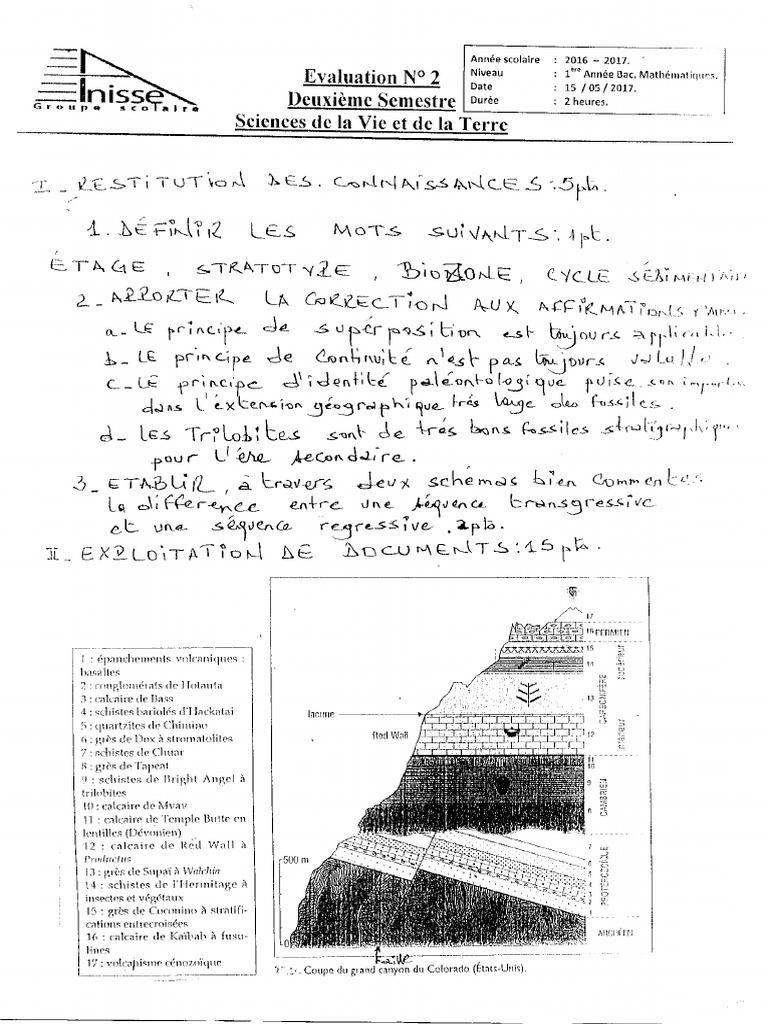 Anisse
Groupe scolaire
Evaluation N° 2
Deuxième Semestre
Sciences de la Vie et de la Terre
Année scolaire : 2016 – 2017.
Niveau : 1ère Année Bac. Mathématiques.
Date : 15 / 05 / 2017.
Durée : 2 heures.
I - RESTITUTION DES CONNAISSANCES : 5pts.
1. DÉFINIR LES MOTS SUIVANTS : 1pt.
ÉTAGE, STRATOTYPE, BIOZONE, CYCLE SÉDIMENTAI
2 - APPORTER LA CORRECTION AUX AFFIRMATIONS
a - LE principe de superposition est toujours applicable
b - LE principe de continuité n'est pas toujours valable.
c - LE principe d'identité paléontologique puise son importan
dans l'extension géographique très large des fossiles.
d - LES Trilobites sont de très bons fossiles stratigraphiqu
pour l'ère secondaire.
3 - ETABLIR, à travers deux schémas bien commentés
la difference entre une séquence transgressive
et une séquence regressive. 2pts.
II - EXPLOITATION DE DOCUMENTS : 15 pts.
1 : épanchements volcaniques :
basaltes
2 : conglomérats de Hotauta
3 : calcaire de Bass
4 : schistes bariolés d'Hackatai
5 : quartzites de Chimino
6 : grès de Dox à stromatolites
7 : schistes de Chuar
8 : grès de Tapeat
9 : schistes de Bright Angel à
trilobites
10 : calcaire de Muav
11 : calcaire de Temple Butte en
lentilles (Dévonien)
12 : calcaire de Red Wall à
Productus
13 : grès de Supaï à Walchia
14 : schistes de l'Hermitage à
insectes et végétaux
15 : grès de Coconino à stratifi-
cations entrecroisées
16 : calcaire de Kaïbab à fusu-
lines
17 : volcanisme cénozoïque
17
16
PERMIEN
15
14
supérieur
13
CARBONIFÈRE
lacune
Red Wall
12
inférieur
11
10
9
CAMBRIEN
8
7
6
5
4
3
2
1
PROTÉROZOÏQUE
500 m
0
ARCHÉEN
Faille
Coupe du grand canyon du Colorado (États-Unis).